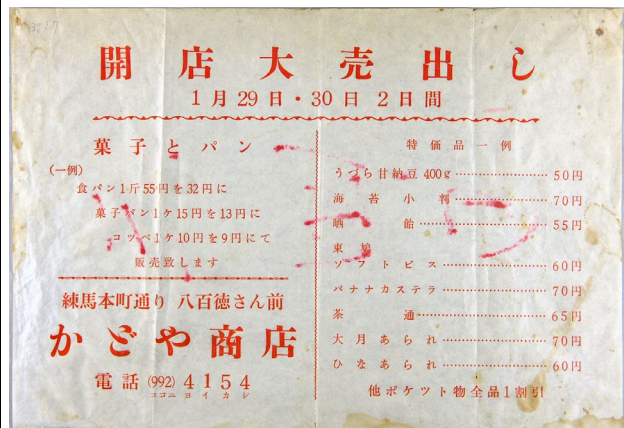 開店大売出し
1月29日・30日 2日間
菓子とパン
(一例)
食パン1斤55円を32円に
菓子パン1ケ15円を13円に
コッペ1ケ10円を9円にて
販売致します
練馬本町通り 八百徳さん前
かどや商店
電話(992)4154
ココニヨイカシ
特価品一例
うづら甘納豆400g 50円
海苔小判 70円
晒飴 55円
東鳩
ソフトビス 60円
バナナカステラ 70円
茶通 65円
大月あられ 70円
ひなあられ 60円
他ポケット物全品1割引